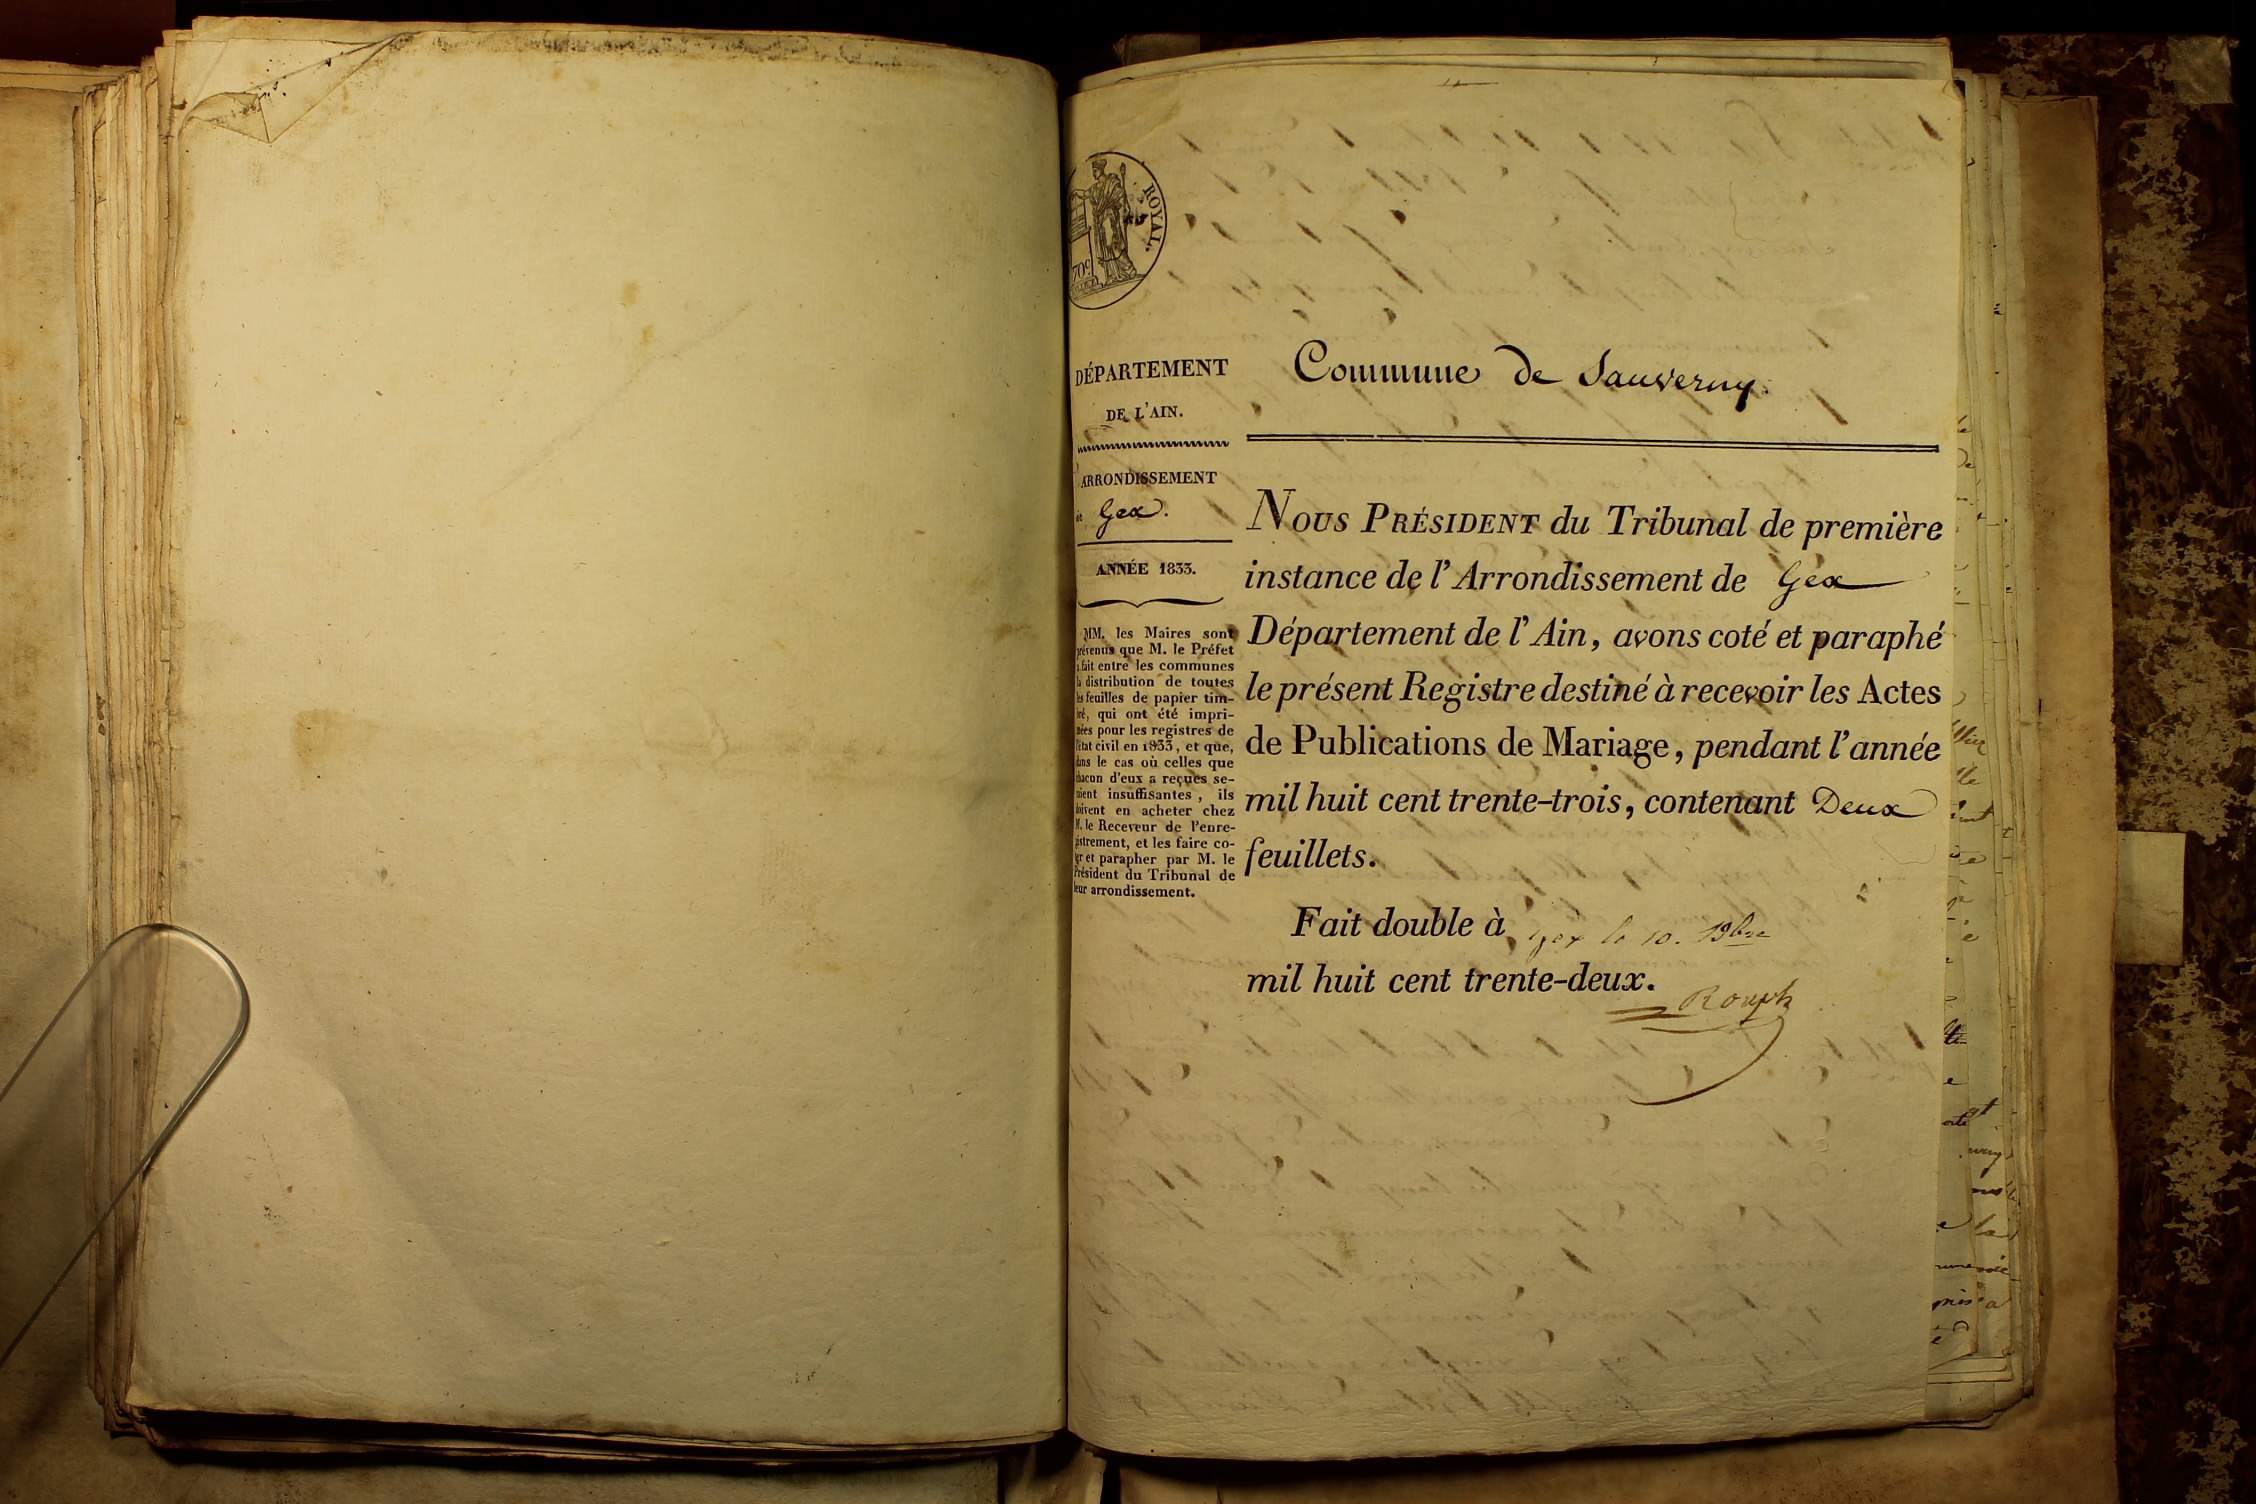 ROYAL.
70c
DÉPARTEMENT
DE L'AIN.
ARRONDISSEMENT
de Gex.
ANNÉE 1833.
MM. les Maires sont
prévenus que M. le Préfet
a fait entre les communes
la distribution de toutes
les feuilles de papier tim-
bré, qui ont été impri-
mées pour les registres de
l'état civil en 1833, et que,
dans le cas où celles que
chacun d'eux a reçues se-
raient insuffisantes, ils
doivent en acheter chez
M. le Receveur de l'enre-
gistrement, et les faire co-
ter et parapher par M. le
Président du Tribunal de
leur arrondissement.
Commune de Sauverny.
Nous Président du Tribunal de première
instance de l'Arrondissement de Gex
Département de l'Ain, avons coté et paraphé
le présent Registre destiné à recevoir les Actes
de Publications de Mariage, pendant l'année
mil huit cent trente-trois, contenant Deux
feuillets.
Fait double à Gex le 10. Xbre
mil huit cent trente-deux.
Rouph